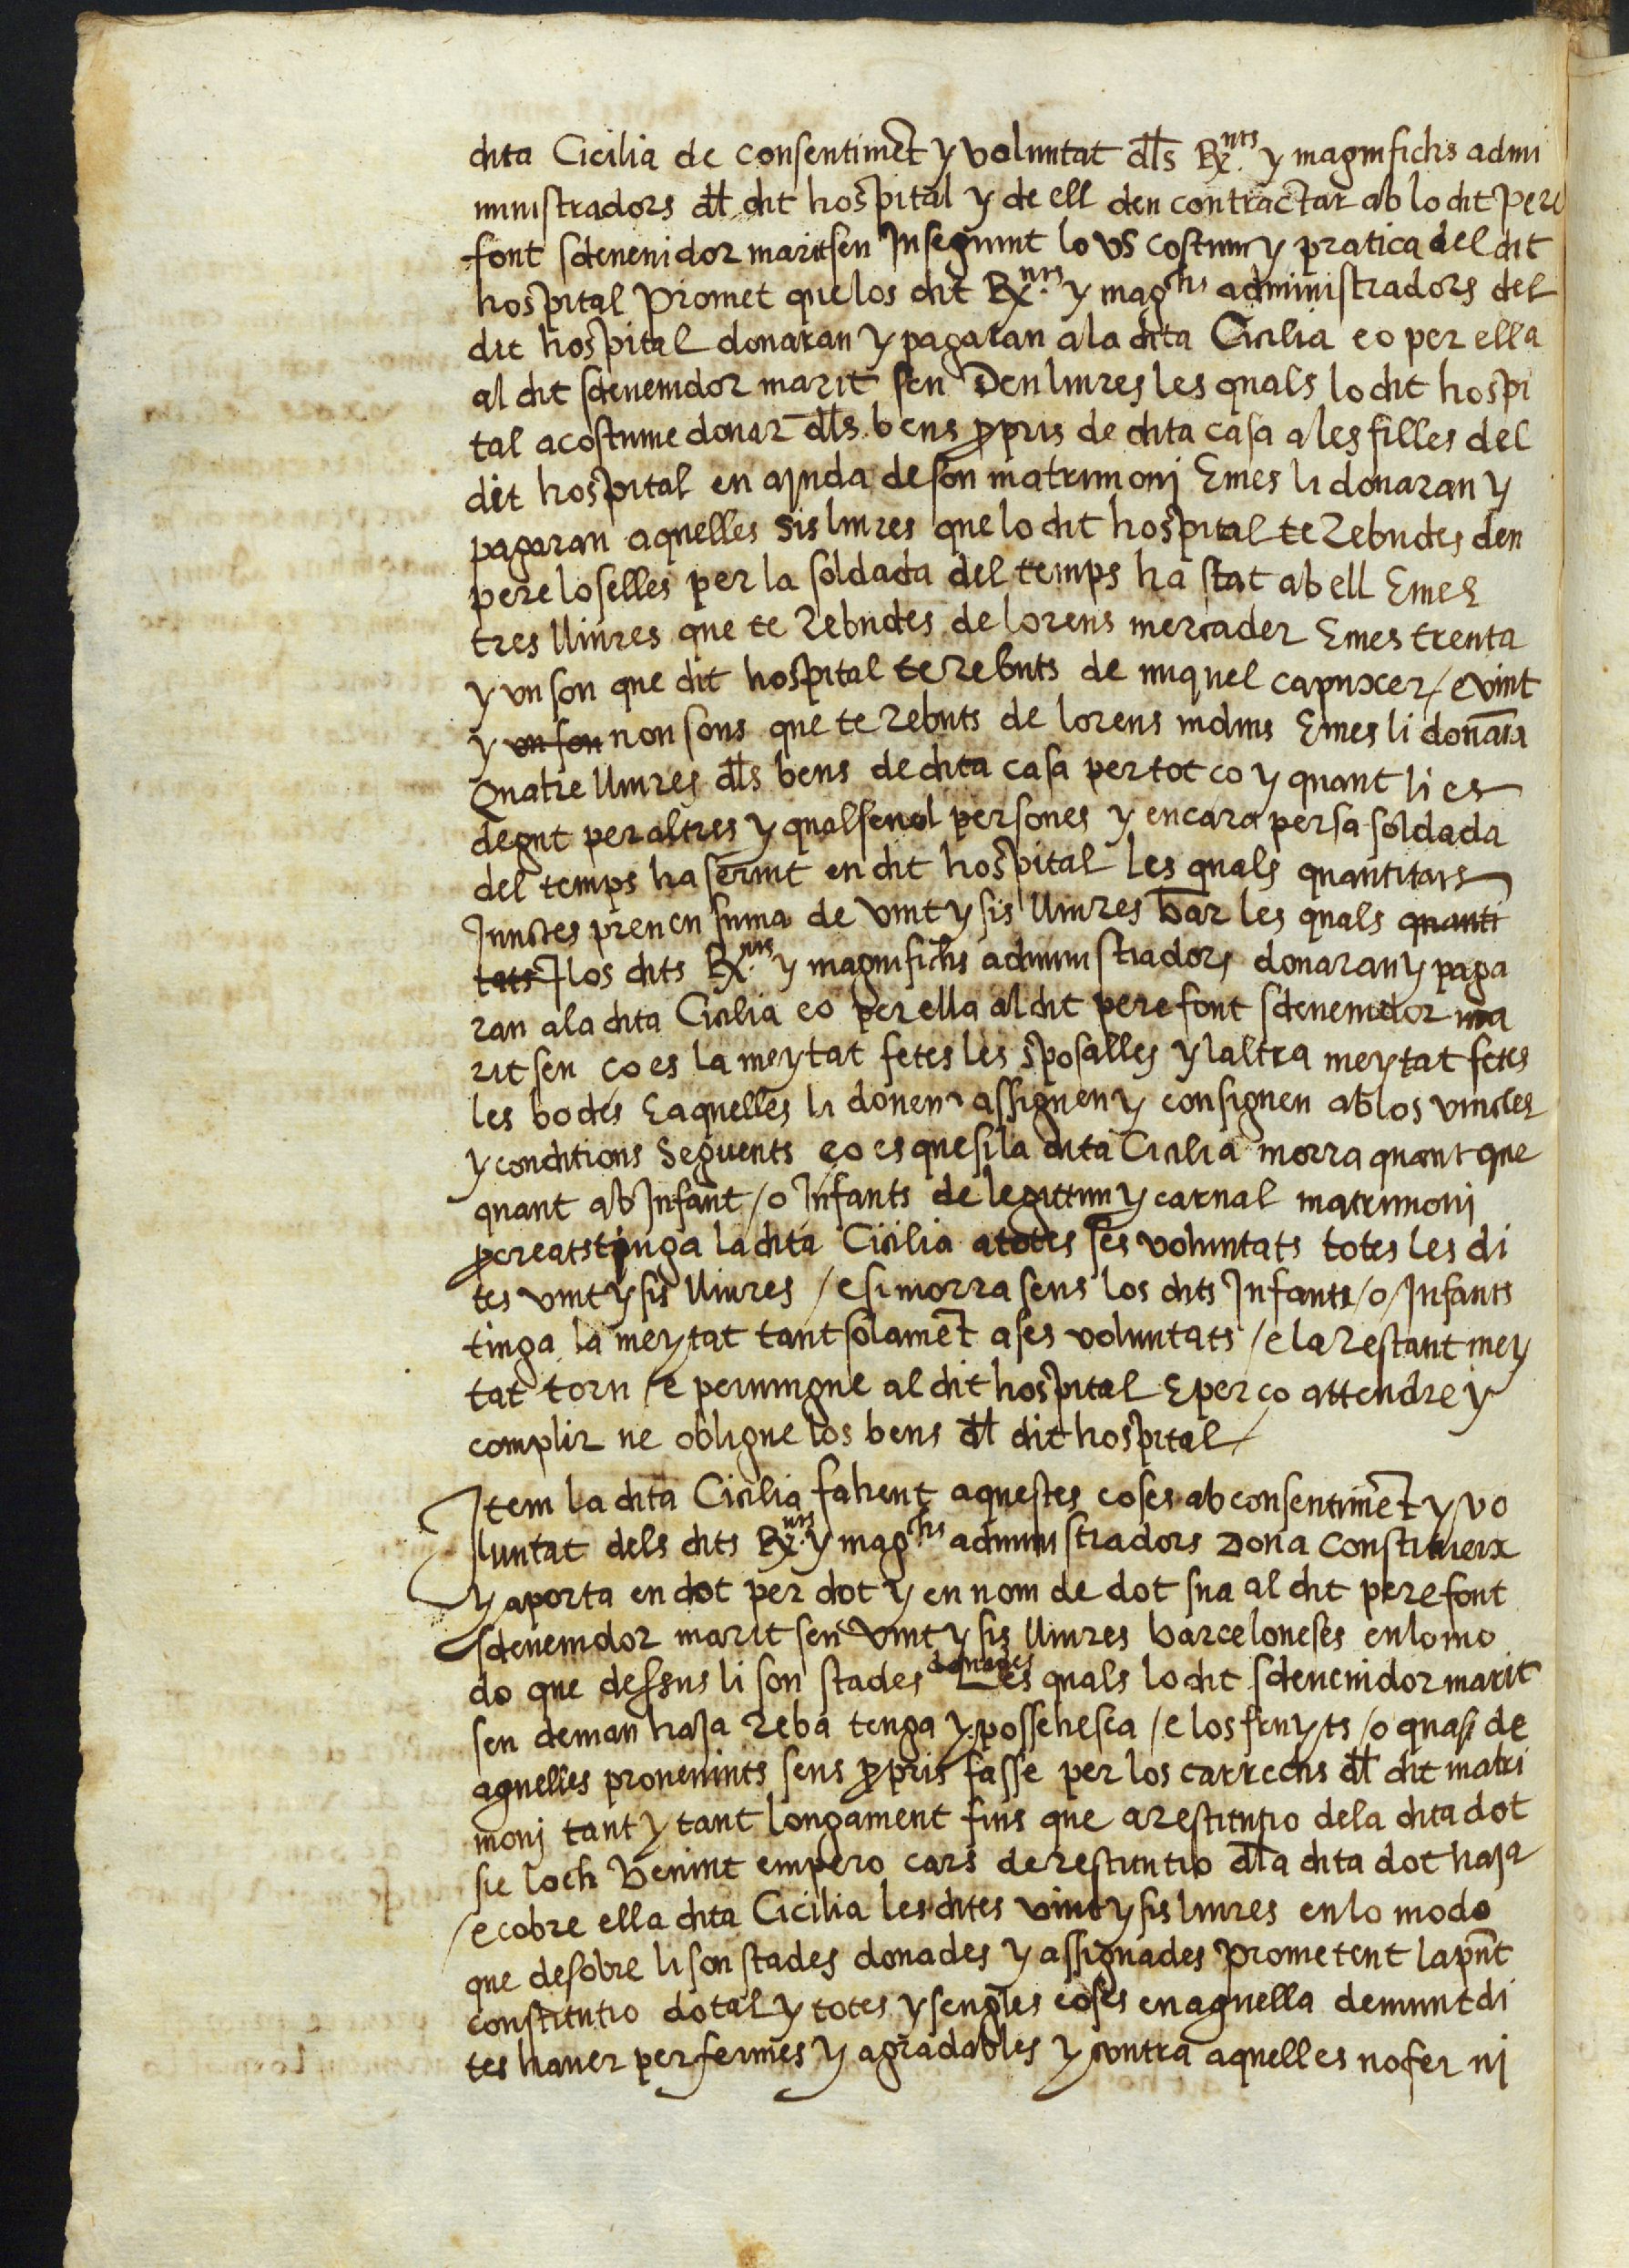 dita Cicilia de consentimēt y voluntat dl̄s Rx.nts y magnifichs admi
ministradors dl̄ dit hospital y de ell den contractar ab lo dit pere
font sdevenidor marit seu Inseguint lo us costum y pratica del dit
hospital Promet que los dit Rx.nts y magchs administradors del
dit hospital donaran y pagaran a la dita Cicilia eo per ella
al dit sdevenidor marit seu Deu liures les quals lo dit hospi
tal acostume donar dl̄s bens ꝓpris de dita casa a les filles del
dit hospital en ajuda de son matrimonj E mes li donaran y
pagaran aquelles sis liures que lo dit hospital te rebudes den
pere loselles per la soldada del temps ha stat ab ell E mes
tres lliures que te rebudes de lorens mercader E mes trenta
y un sou que dit hospital te rebuts de miquel capuxer / e vint
y un sou nou sous que te rebuts de lorens E mes li donarā
Quatre lliures dl̄s bens de dita casa per tot ço y quant li es
degut per altres y qualsevol persones y encara per sa soldada
del temps ha servit en dit hospital les quals quantitats
Junctes prenen suma de vint y sis lliures bār les quals quanti
tats los dits Rx.nts y magnifichs administradors donaran y paga
ran a la dita Cicilia eo per ella al dit pere font sdevenidor ma
rit seu ço es la meytat fetes les sposalles y laltra meytat fetes
les bodes E aquelles li donen assignen y consignen ab los vincles
y conditions Seguents ço es que si la dita Cicilia morra quant que
quant ab Infant / o Infants de legittim y carnal matrimonj
ꝓcreats tinga la dita Cicilia a totes ses voluntats totes les di
tes vint y sis lliures / e si morra sens los dits Infants / o / Infants
tinga la meytat tant solamēt a ses voluntats / e la restant mey
tat torn / e pervingue al dit hospital E per ço attendre y
complir ne obligue los bens dl̄ dit hospital /
Item la dita Cicilia fahent aquestes coses ab consentimēt y vo
luntat dels dits Rx.nts y magchs administradors Dona Constitueix
y aporta en dot per dot y en nom de dot sua al dit pere font
sdevenidor marit seu vint y sis lliures barceloneses en lo mo
do que dessus li son stades donades Les quals lo dit sdevenidor marit
seu deman haja reba tenga y possehesca / e los fruyts / o quasi de
aquelles provenints sens ꝓpris fasse per los carrechs dl̄ dit matri
monj tant y tant longament fins que a restitutio de la dita dot
sie loch Venint empero cars de restitutio dl̄a dita dot haja
/ e cobre ella dita Cicilia les dites vint y sis liures en lo modo
que desobre li son stades donades y assignades Prometent la pn̄t
constitutio dotal y totes y sengles coses en aquella demunt di
tes haver per fermes y agradables y contra aquelles no fer nj